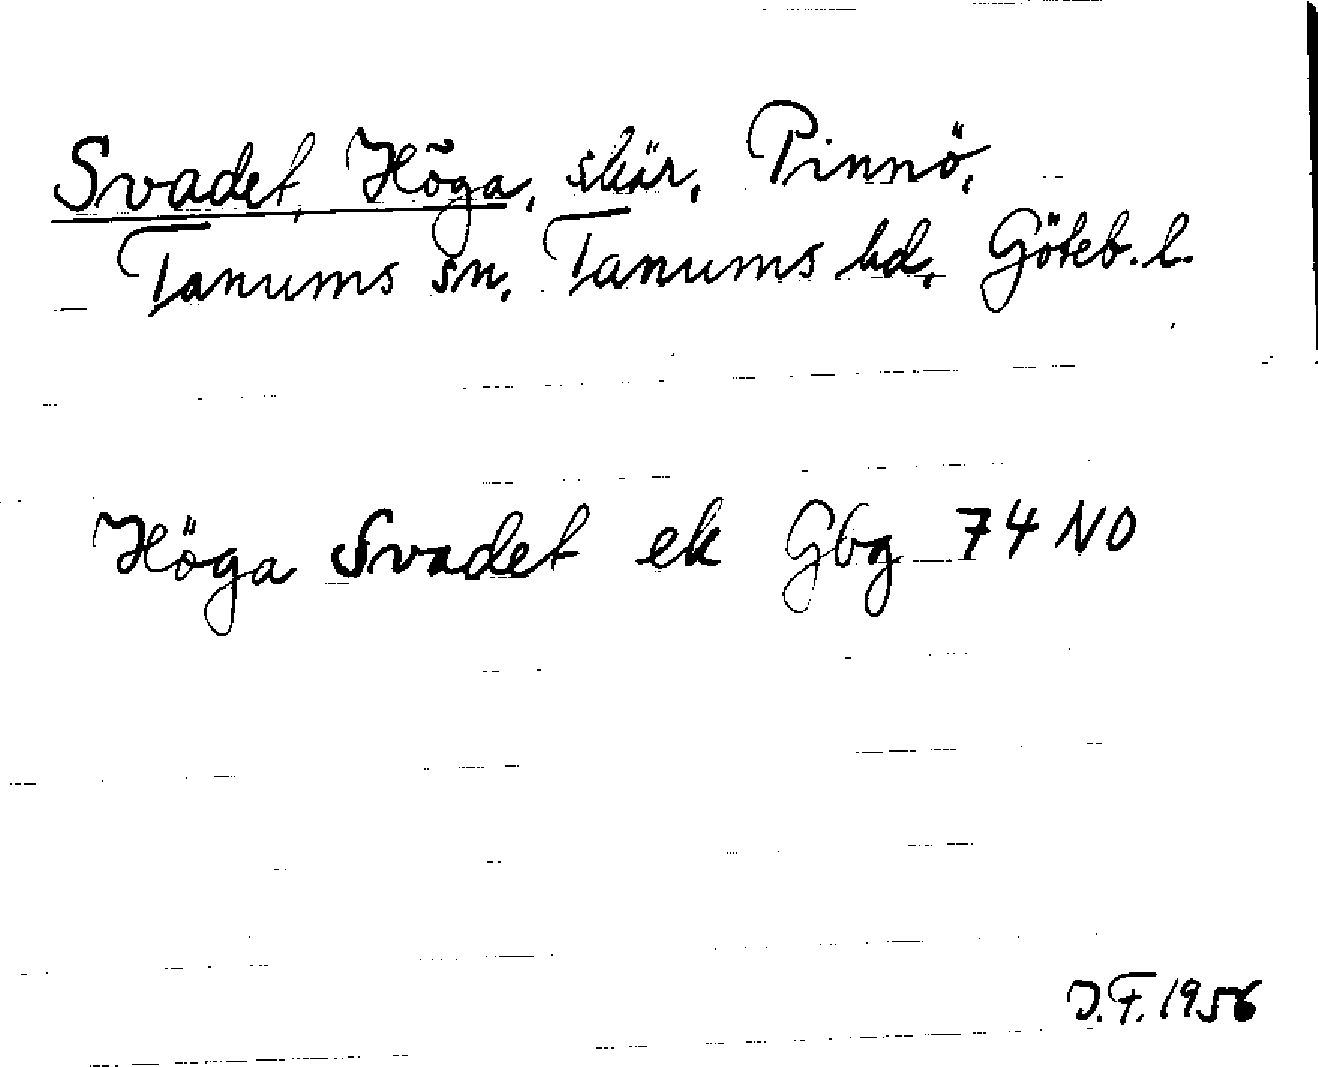 Svadet, Höga, skär, Pinnö,
Tanums sn, Tanums hd, Göteb. l.
Höga Svadet ek Gbg 74 NO
J.F. 1956